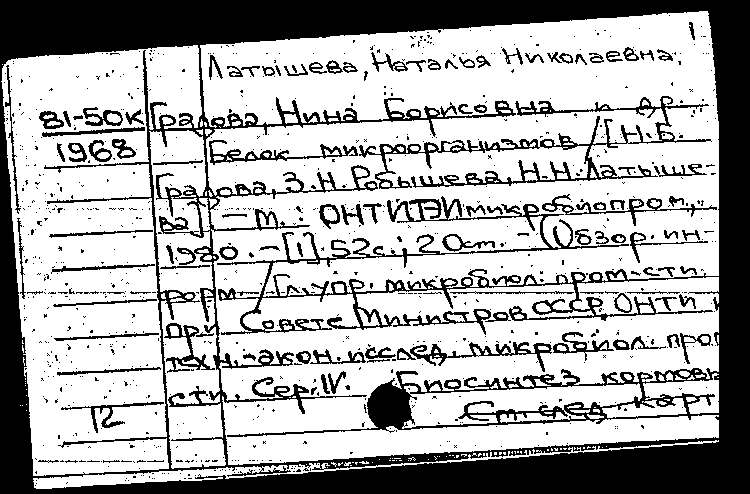 1
Латышева, Наталья Николаевна.
81-50К Градова, Нина Борисовна и др.
1968 Белок микроорганизмов / [Н.Б.
Градова, З.Н. Робышева, Н.Н. Латыше-
ва] – М.: ОНТИТЭИмикробиопром,
1980. – [1], 52с.; 20см. – (Обзор. ин-
форм. / Гл. упр. микробиол. пром-сти
при Совете Министров СССР, ОНТИ и
техн.-экон. исслед. микробиол. про
сти. Сер. IV. Биосинтез кормовы
12 См. след. карт